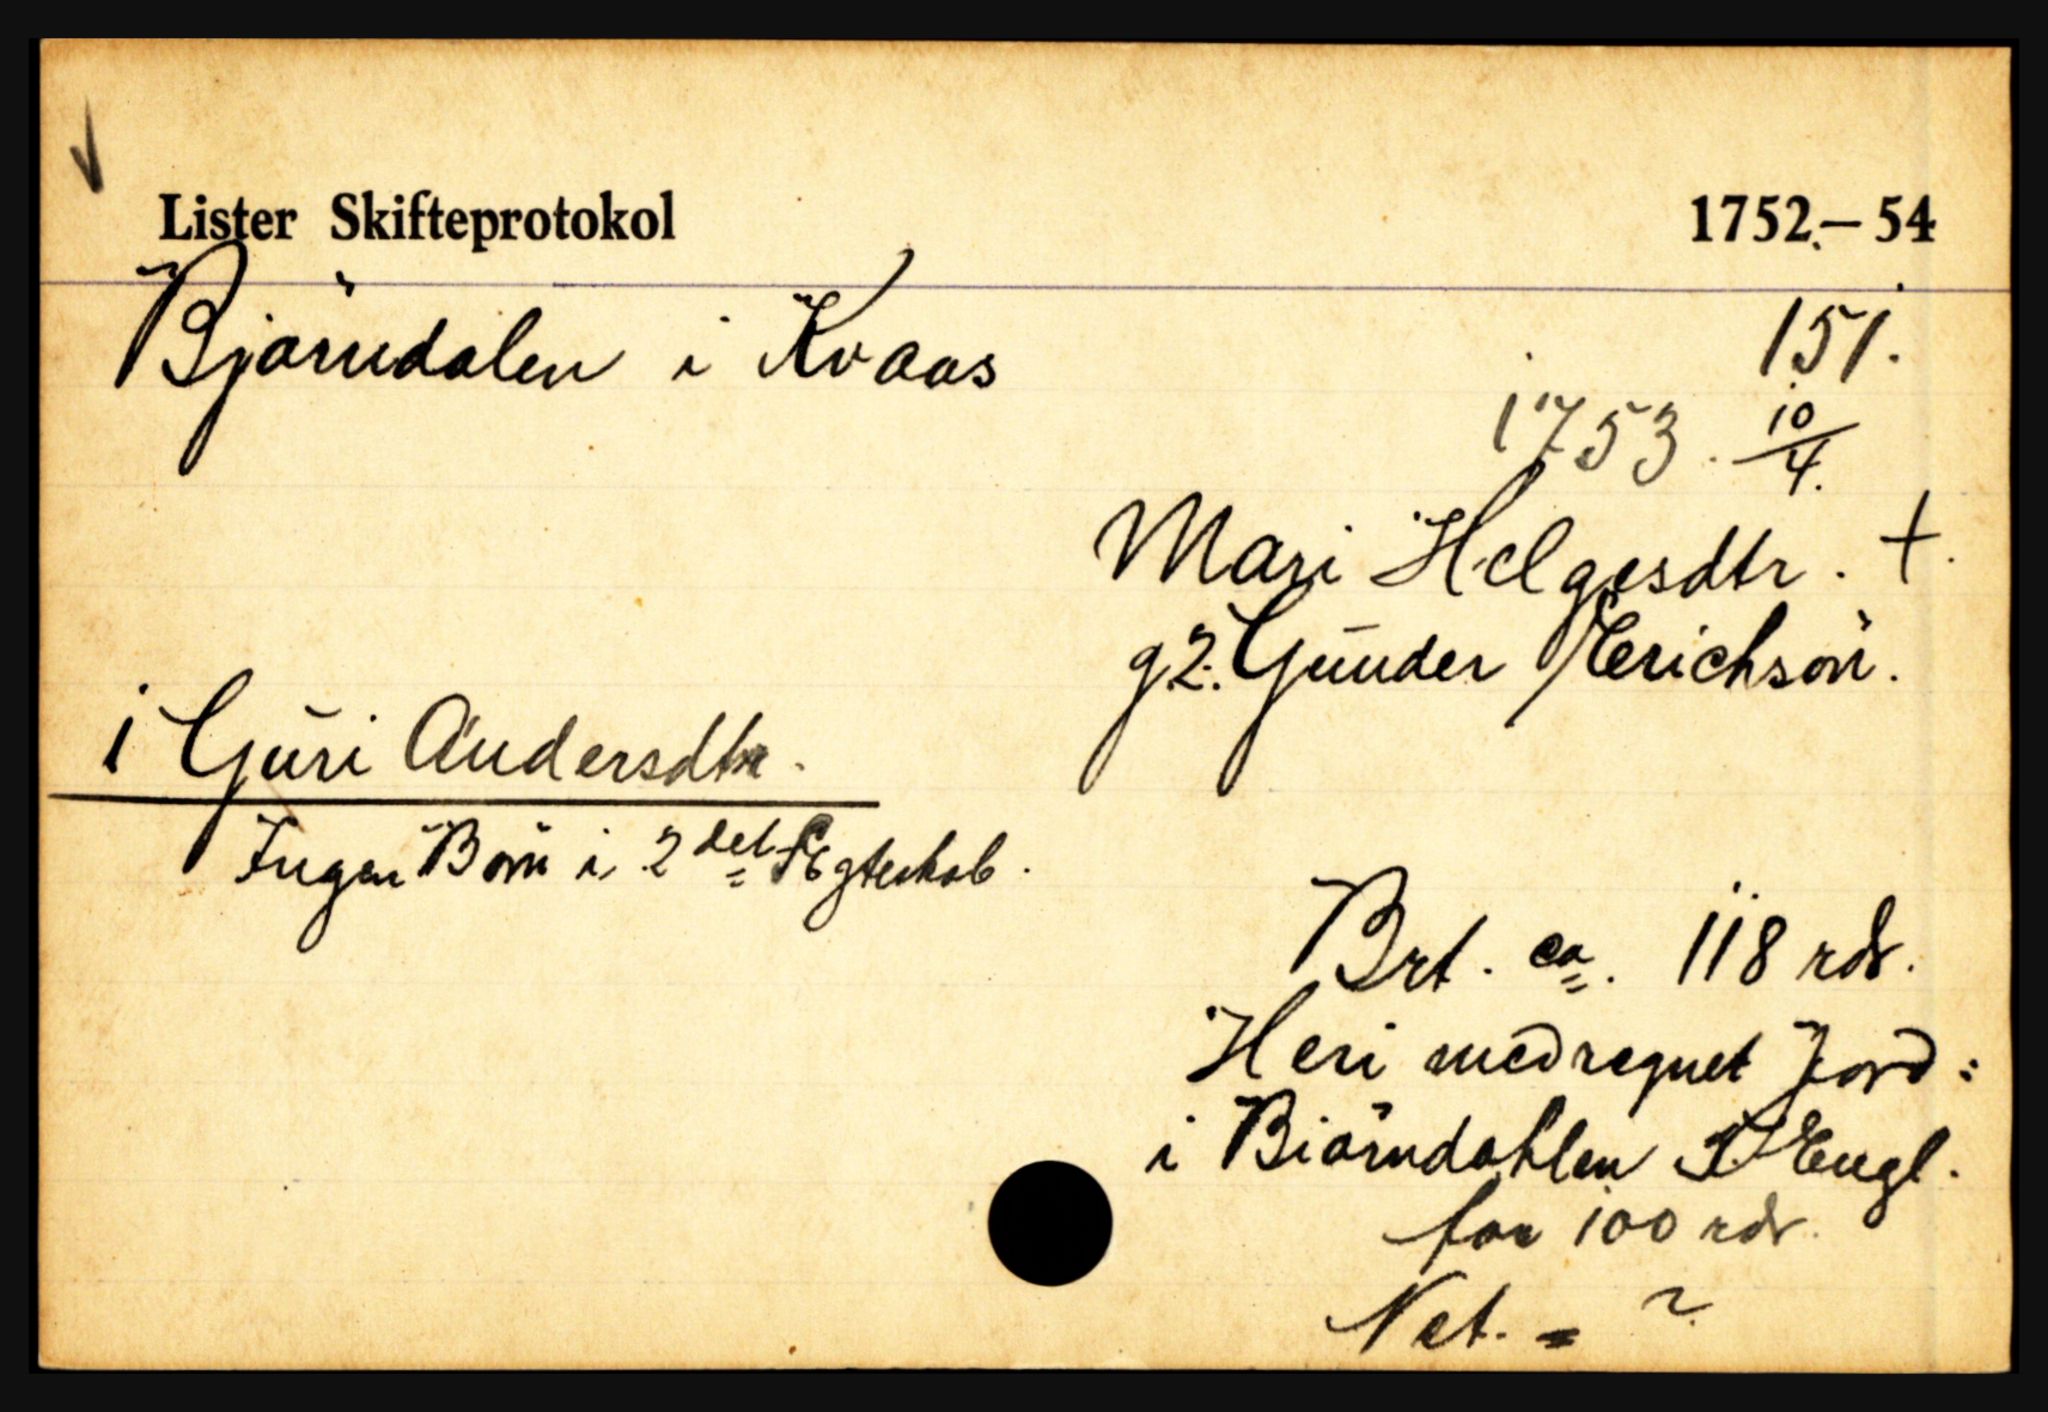 Lister Skifteprotokol 1752-54
Bjørndalen i Kvaas 151.
1753. 10/4.
Mari Helgesdtr. +.
g2. Gunder Erichsön.
1 Guri Andersdtr.
Ingen Börn i 2det Egteskab.
Brt. ca. 118 rdr.
Heri medregnet Jord:
i Biörndahlen Engl.
for 100 rdr.
Net. = ?